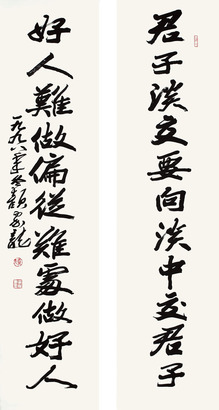 君子淡交要向淡中交君子
好人難做偏從難處做好人
一九九八年冬顏家龍